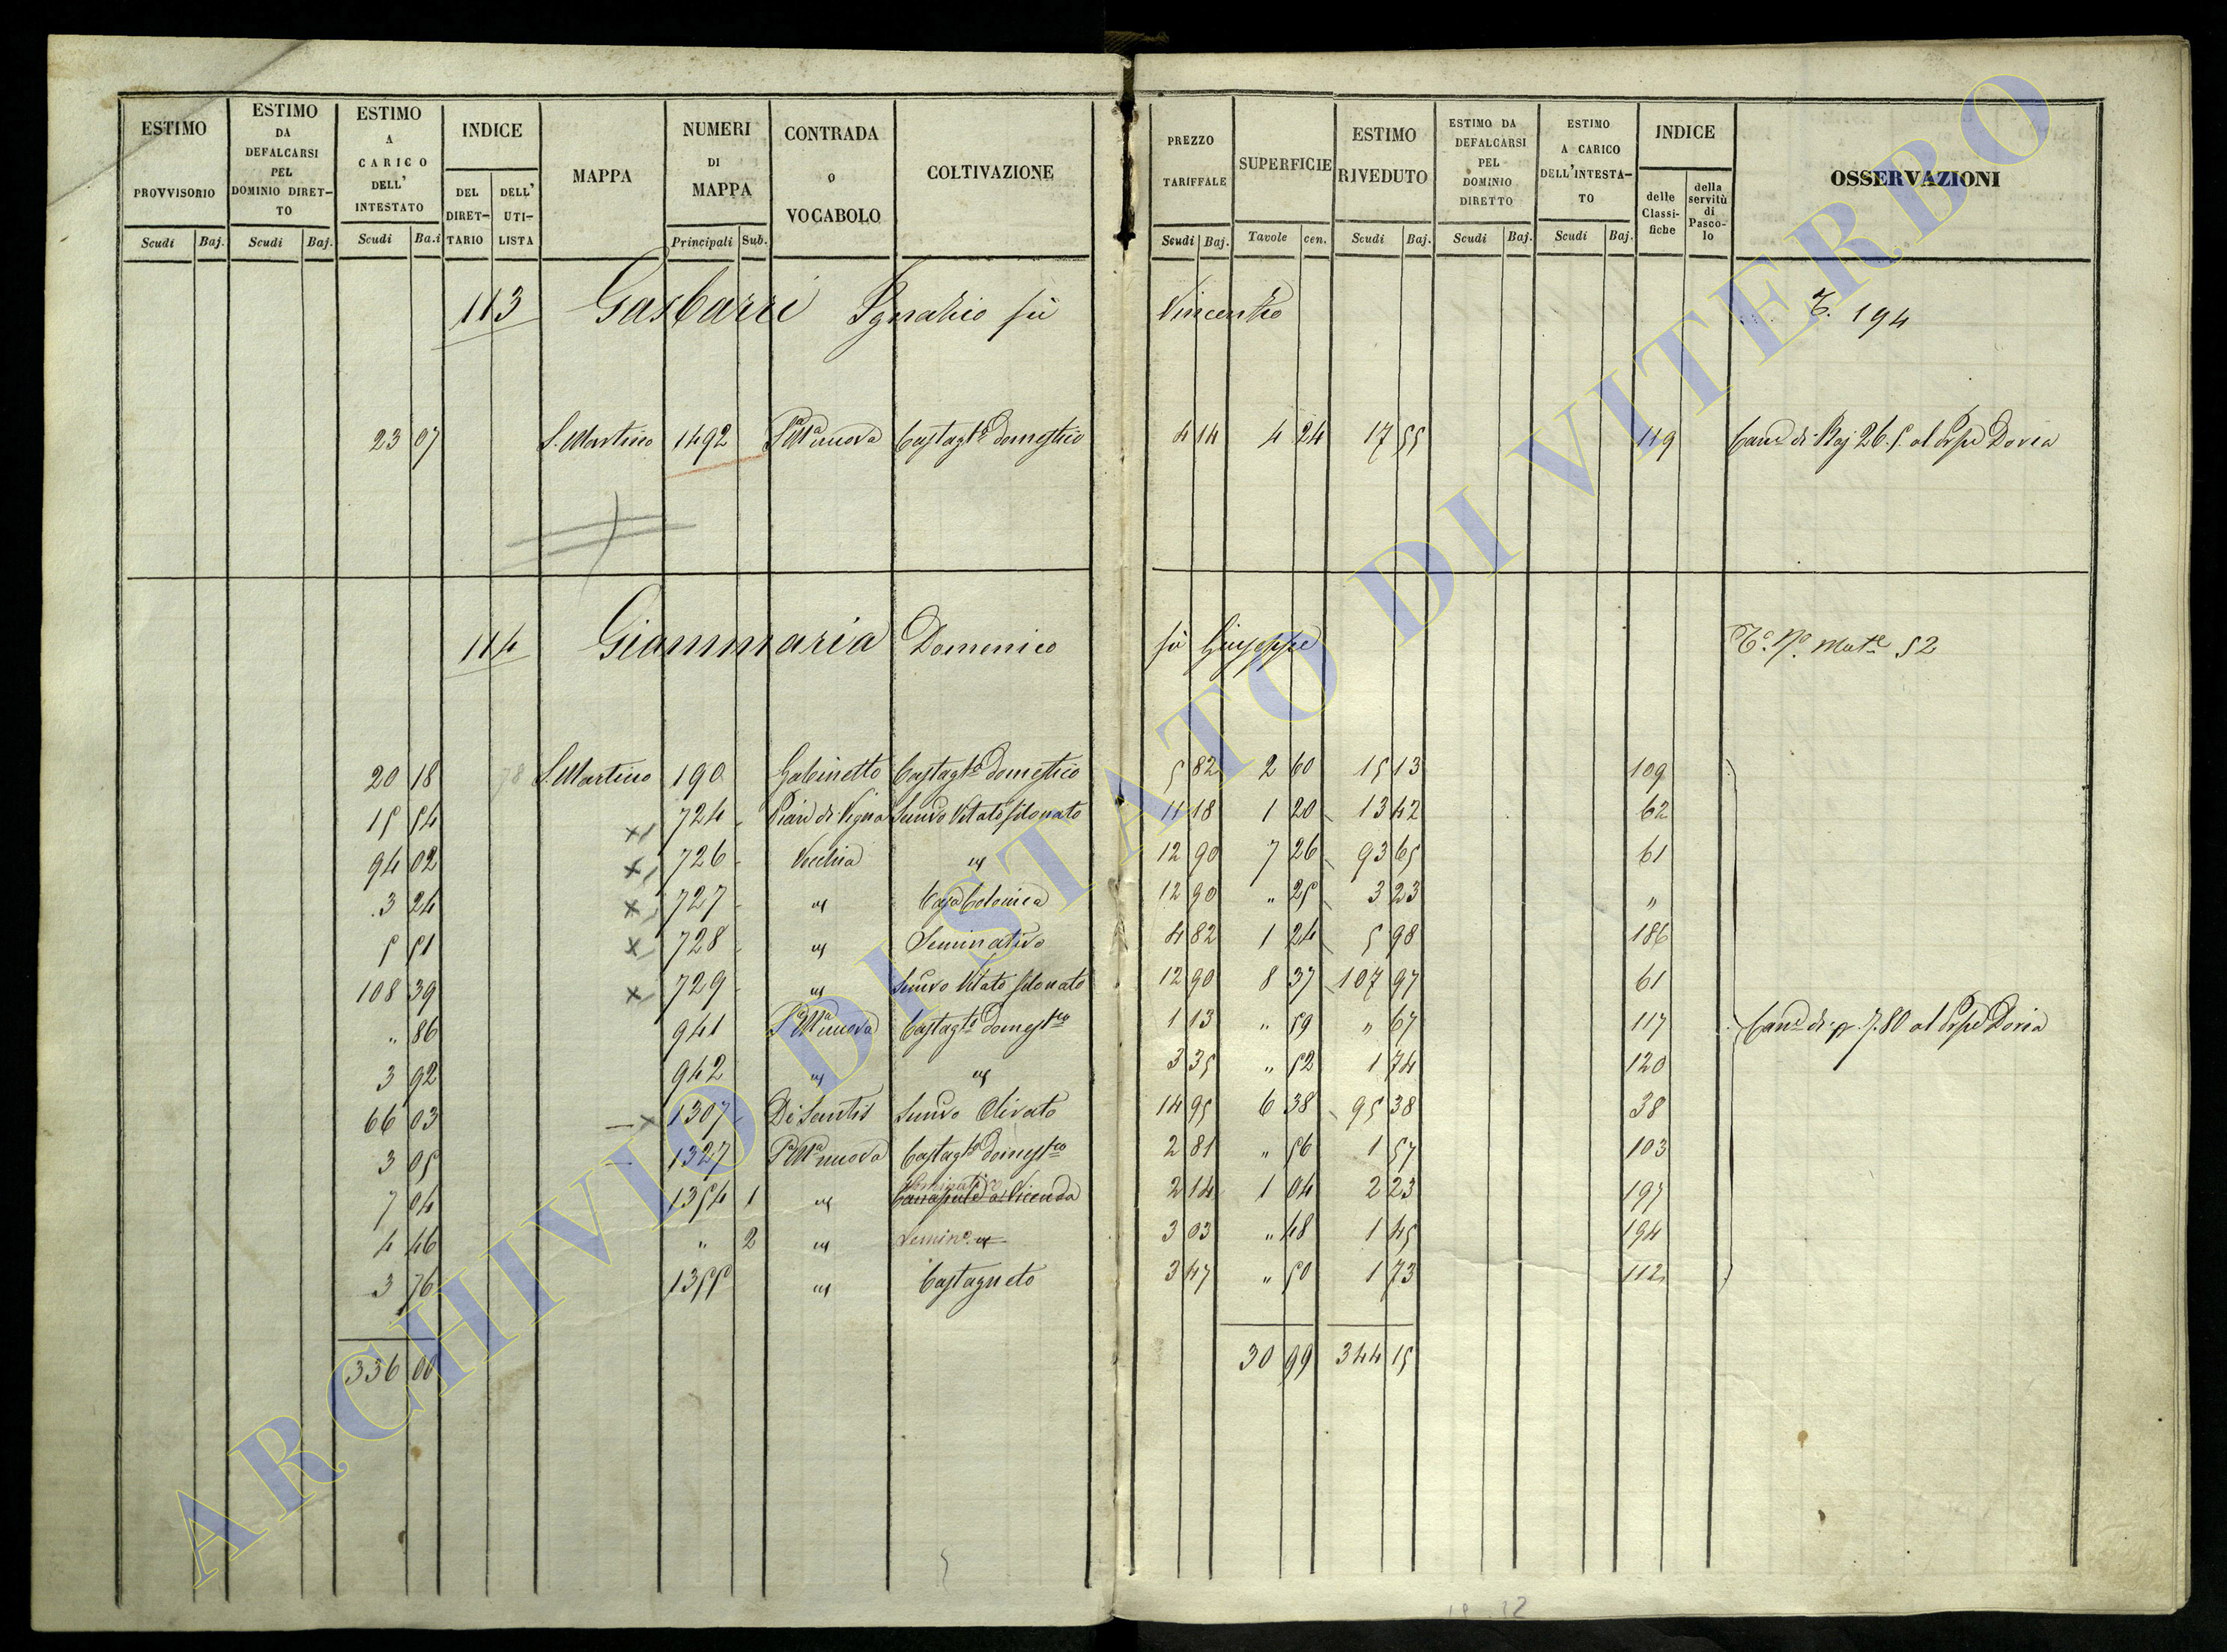 ESTIMO PROVVISORIO Scudi Baj.
ESTIMO DA DEFALCARSI PEL DOMINIO DIRET-TO Scudi Baj.
ESTIMO A CARICO DELL' INTESTATO Scudi Ba.i
INDICE DEL DIRET-TARIO DELL' UTI-LISTA
MAPPA
NUMERI DI MAPPA Principali Sub.
CONTRADA o VOCABOLO
COLTIVAZIONE
PREZZO TARIFFALE Scudi Baj.
SUPERFICIE Tavole cen.
ESTIMO RIVEDUTO Scudi Baj.
ESTIMO DA DEFALCARSI PEL DOMINIO DIRETTO Scudi Baj.
ESTIMO A CARICO DELL'INTESTA-TO Scudi Baj.
INDICE delle Classi-fiche della servitù di Pasco-lo
OSSERVAZIONI
113 Gasbarri Ignazio fù Vincenzo T. 194
23 07 S. Martino 1492 Pa Ma nuova Castagto domestico 4 14 4 24 17 55 119 Cane di Baj 26.5. al Pspe Doria
114 Giammaria Domenico fù Giuseppe To. No. Mate 52
20 18 78 S. Martino 190 Gabinetto Castagto domestico 5 82 2 60 15 13 109
15 54 x 724 Pian di Vigna Semivo Vitato folonato 11 18 1 20 13 42 62
94 02 x 726 Vecchia " 12 90 7 26 93 65 61
3 24 x 727 " Casa Colonica 12 90 " 25 3 23 "
5 51 x 728 " Seminativo 4 82 1 24 5 98 186
108 39 x 729 " Semivo Vitato folonato 12 90 8 37 107 97 61
" 86 941 Pa Ma nuova Castagto domestco 1 13 " 59 " 67 117 Cane di 7.80 al Pspe Doria
3 92 942 " " 3 35 " 52 1 74 120
66 03 x 1307 De Santis Semivo Olivato 14 95 6 38 95 38 38
3 05 1327 Pa Ma nuova Castagto domestco 2 81 " 56 1 57 103
7 04 1354 1 " Seminativo Canapule a Vicenda 2 14 1 04 2 23 197
4 46 " 2 " Semino. " 3 03 " 48 1 45 194
3 76 1355 " Castagneto 3 47 " 50 1 73 112
336 00 30 99 344 15
ARCHIVIO DI STATO DI VITERBO